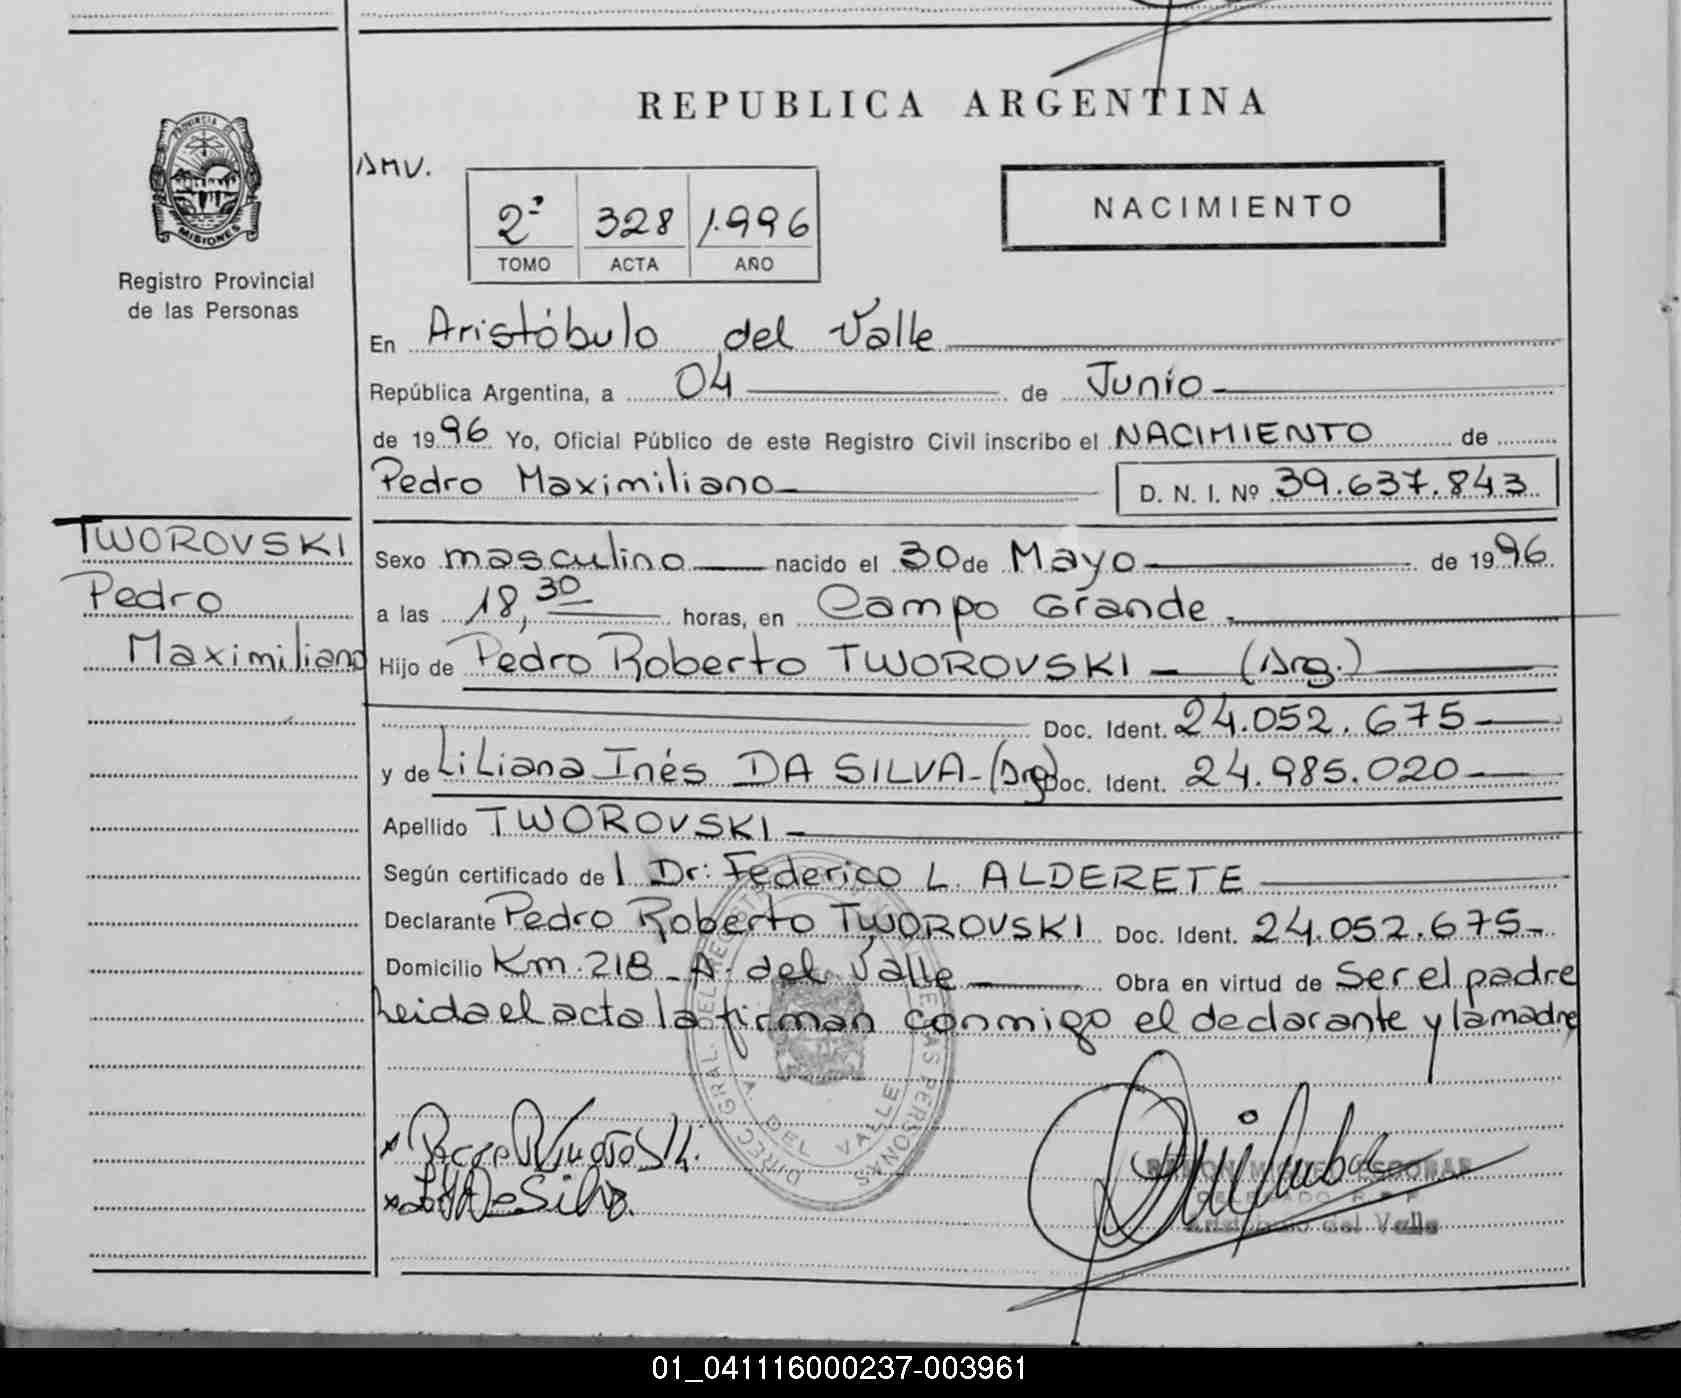 REPUBLICA ARGENTINA
PROVINCIA DE
MISIONES
Registro Provincial
de las Personas
AMV.
2º 328 1.996
TOMO ACTA AÑO
NACIMIENTO
En Aristóbulo del Valle
República Argentina, a 04 de Junio
de 1996 Yo, Oficial Público de este Registro Civil inscribo el NACIMIENTO de
Pedro Maximiliano D. N. I. Nº 39.637.843
TWOROVSKI
Pedro
Maximiliano
Sexo masculino nacido el 30 de Mayo de 1996
a las 18,30 horas, en Campo Grande
Hijo de Pedro Roberto TWOROVSKI (Arg.)
Doc. Ident. 24.052.675
y de Liliana Inés DA SILVA - (Arg) Doc. Ident. 24.985.020
Apellido TWOROVSKI
Según certificado del Dr: Federico L. ALDERETE
Declarante Pedro Roberto TWOROVSKI Doc. Ident. 24.052.675-
Domicilio Km. 218 - A. del Valle Obra en virtud de Ser el padre
Leida el acta la firman conmigo el declarante y la madre
DIREC. GRAL. DEL REGISTRO DE LAS PERSONAS
A. DEL VALLE
RAMON MIGUEL ESCOBAR
DELEGADO R.P.P
Aristobulo del Valle
01_041116000237-003961